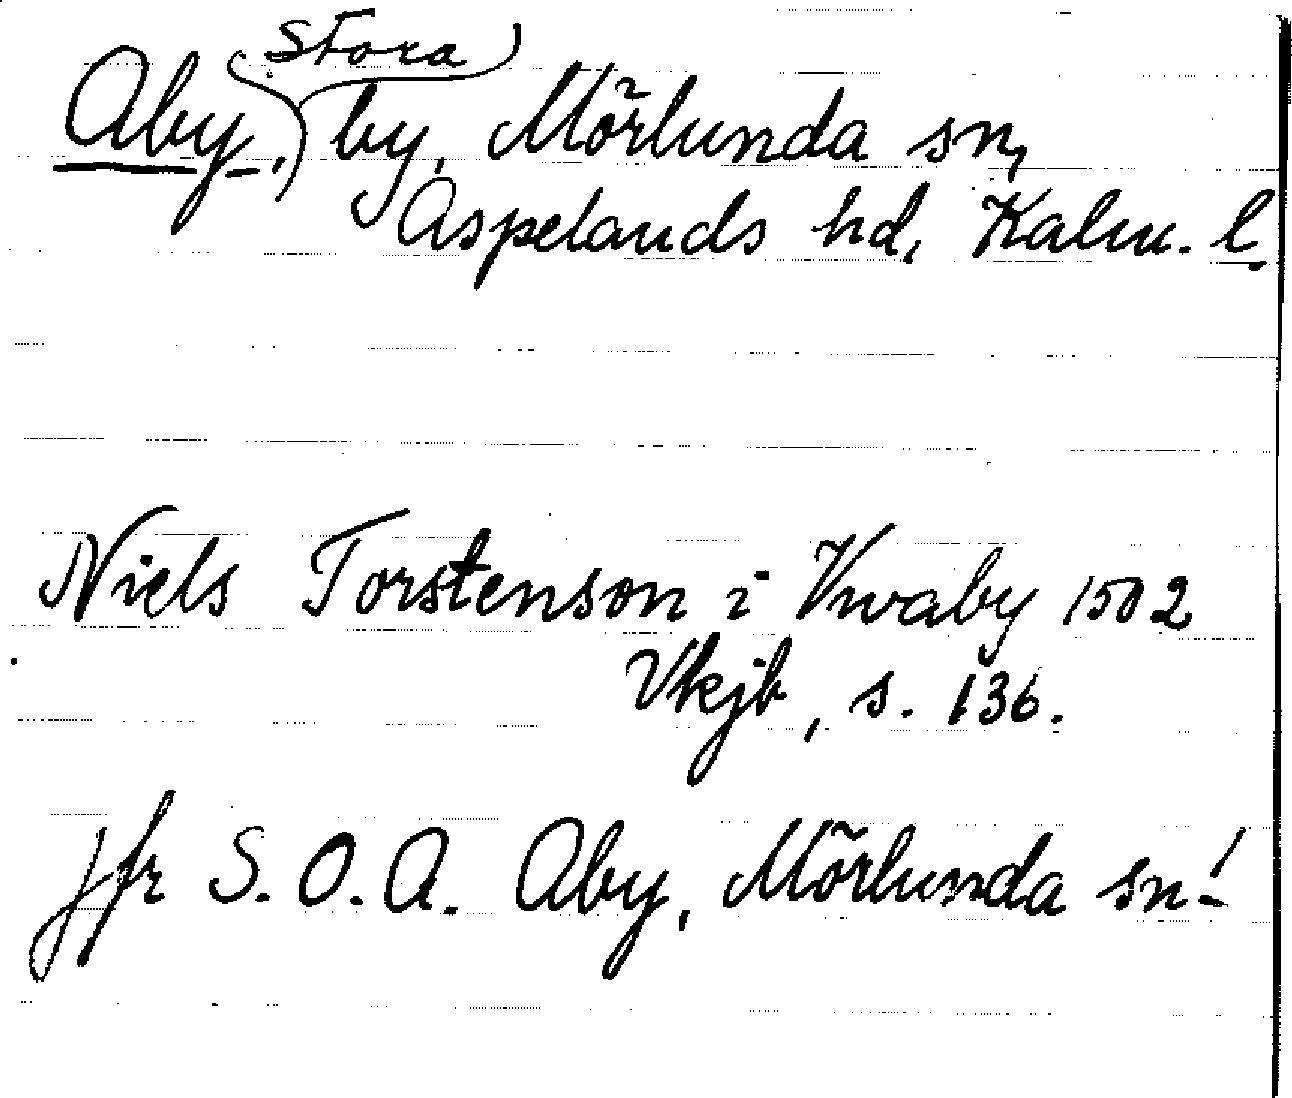 Stora
Aby, by, Mörlunda sn,
Aspelands hd, Kalm. l.
Niels Torstenson i Kwaby 1502
Vkjb, s. 136.
Jfr S.O.A. Aby, Mörlunda sn!